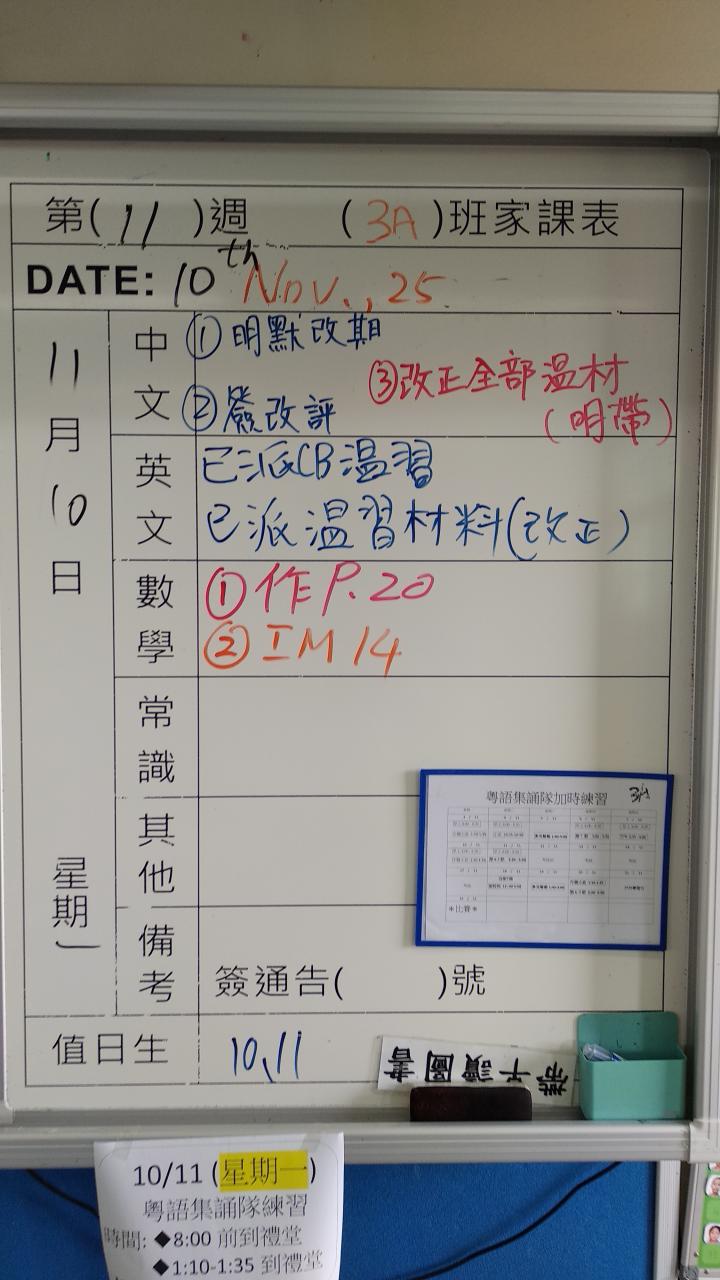 第(11)週 (3A)班家課表
DATE: 10th Nov., 25
11月10日 星期一
中文
①明默改期
②簽改評
③改正全部温材
(明帶)
英文
已派CB温習
已派温習材料(改正)
數學
①作P.20
②IM14
常識
其他
備考
簽通告( )號
值日生
10、11
粵語集誦隊加時練習 3A
*比賽*
帶子讀圖書
10/11 (星期一)
粵語集誦隊練習
時間: ◆8:00 前到禮堂
◆1:10-1:35 到禮堂